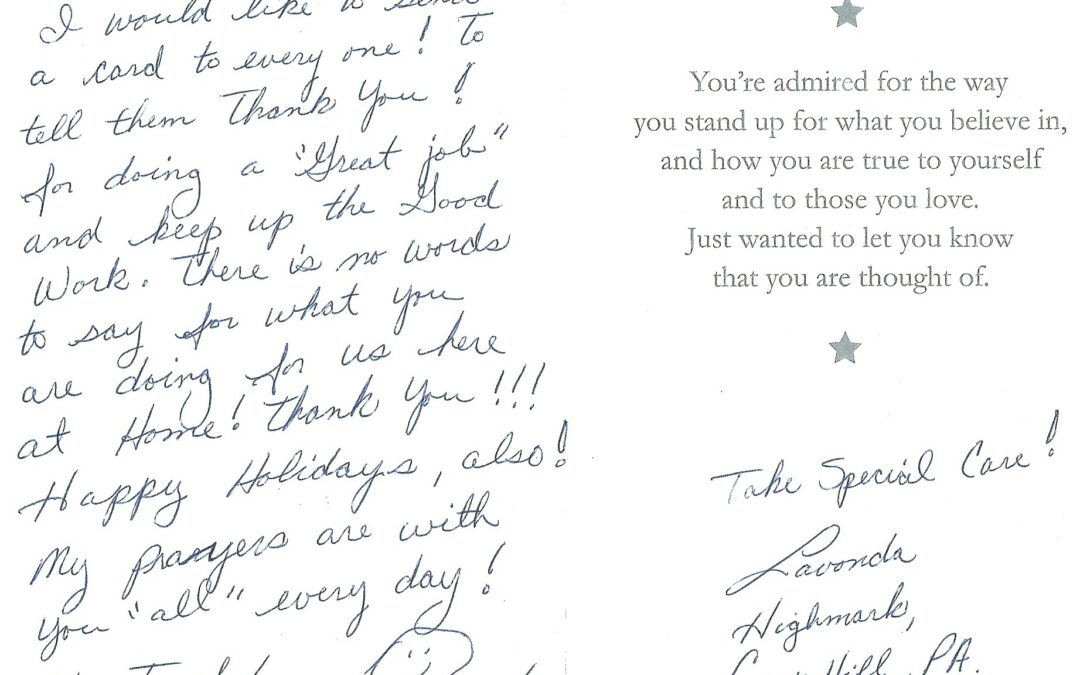 I would like to send
a card to every one! To
tell them Thank You!
for doing a "Great job"
and keep up the Good
Work. There is no words
to say for what you
are doing for us here
at Home! Thank You!!!
Happy Holidays, also!
My prayers are with
You "all" every day!
You're admired for the way
you stand up for what you believe in,
and how you are true to yourself
and to those you love.
Just wanted to let you know
that you are thought of.
Take Special Care!
Lavonda
Highmark,
Camp Hill, PA.